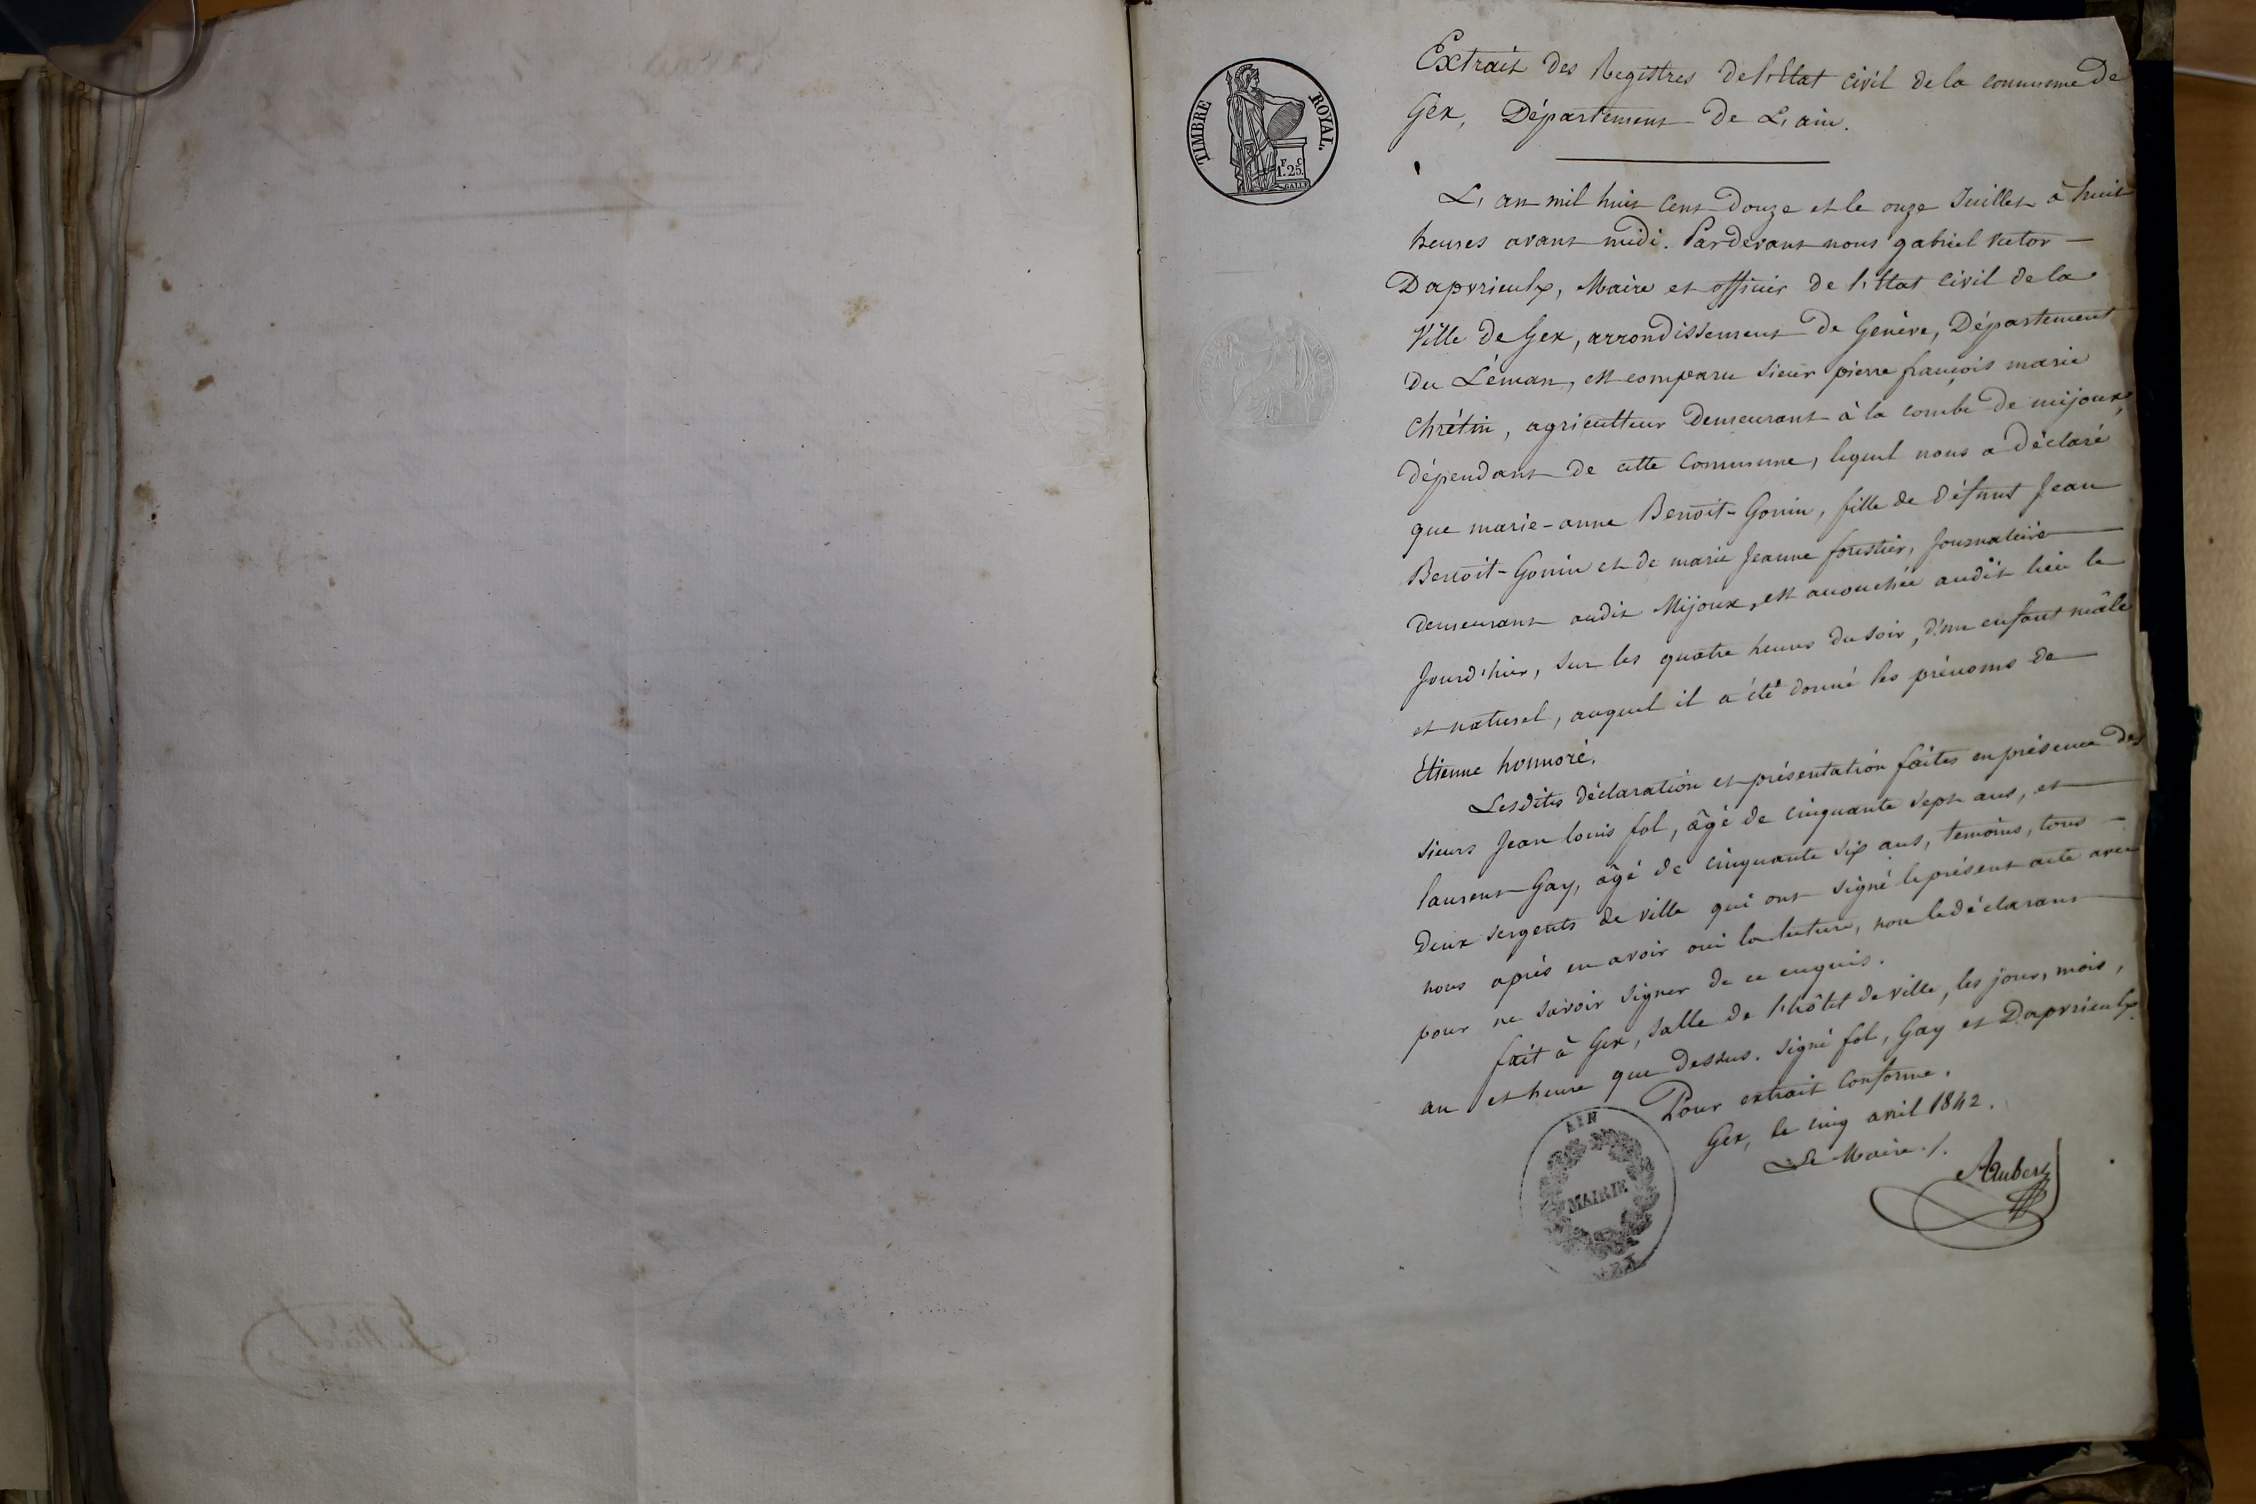 TIMBRE ROYAL.
F C
1.25.
Extrait des Registres de l'Etat civil de la commune De
Gex, Département De L'ain.
L'an mil huit cent douze et le onze Juillet à huit
heures avant midi. Pardevant nous gabriel victor
Dapvrieulx, Maire et officier de l'Etat civil de la
Ville de Gex, arrondissement de Genève, Département
du Léman, est comparu sieur pierre françois marie
Chrétin, agriculteur demeurant à la combe de mijoux,
dépendant de cette commune, lequel nous a déclaré
que marie-anne Benoit-Gonin, fille de défunt Jean
Benoit-Gonin et de marie Jeanne forestier, Journalière
demeurant audit Mijoux, est accouchée audit lieu le
Jourd'hier, sur les quatre heures du soir, d'un enfant mâle
et naturel, auquel il a été donné les prénoms de
Etienne honnoré.
Lesdites déclaration et présentation faites en présence des
sieurs Jean louis fol, âgé de cinquante sept ans, et
laurent Gay, âgé de cinquante six ans, temoins, tous
deux sergents de ville qui ont signé le présent acte avec
nous après en avoir oui la lecture, non le déclarant
pour ne savoir signer de ce enquis.
fait à Gex, salle de l'hôtel de ville, les jour, mois,
an et heure que dessus. signé fol, Gay et Dapvrieulx.
Pour extrait conforme.
Gex, le cinq avril 1842.
Le Maire ./.
Aubert
AIN
MAIRIE
GEX